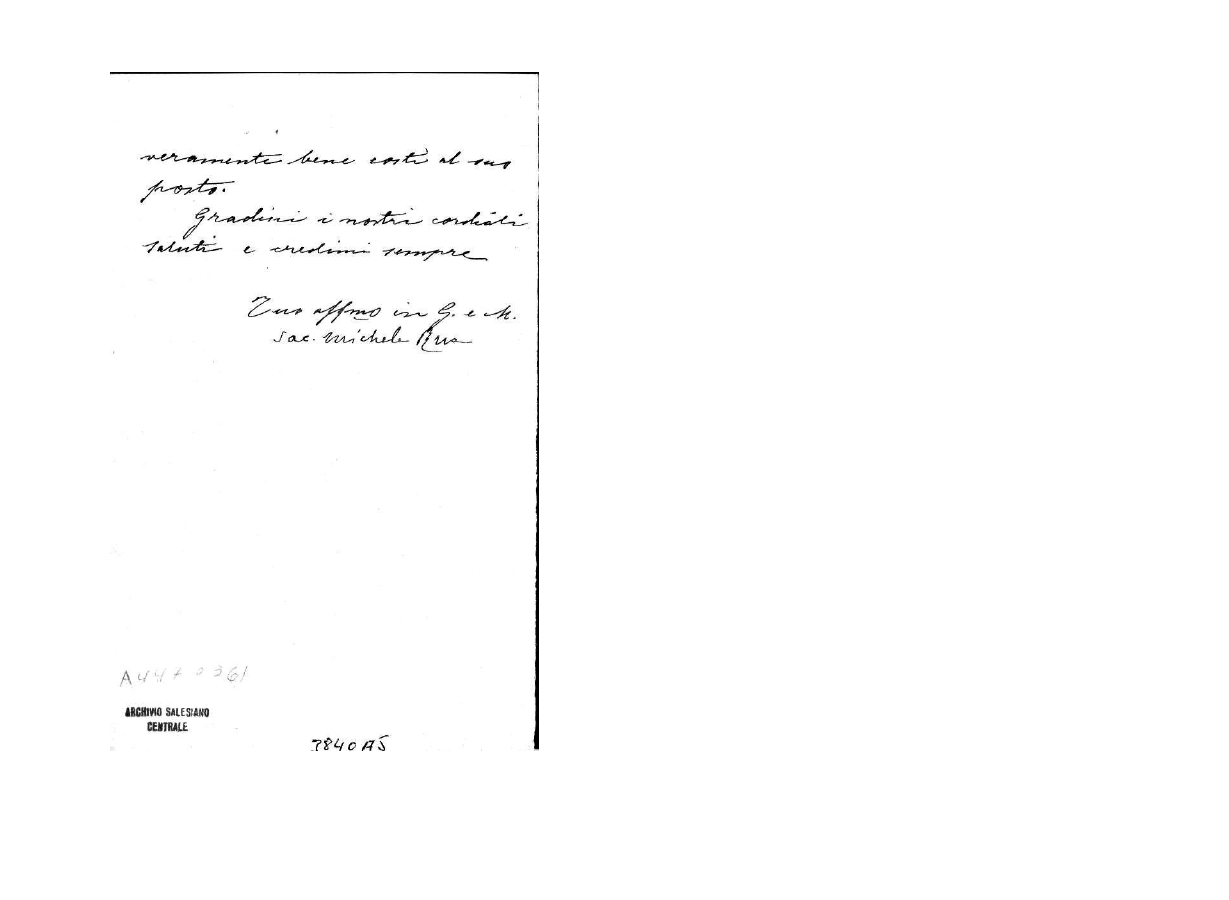 veramente bene costì al suo
posto.
Gradisci i nostri cordiali
saluti e credimi sempre
Tuo affmo in G. e M.
Sac. Michele Rua
ARCHIVIO SALESIANO
CENTRALE
3840 A5